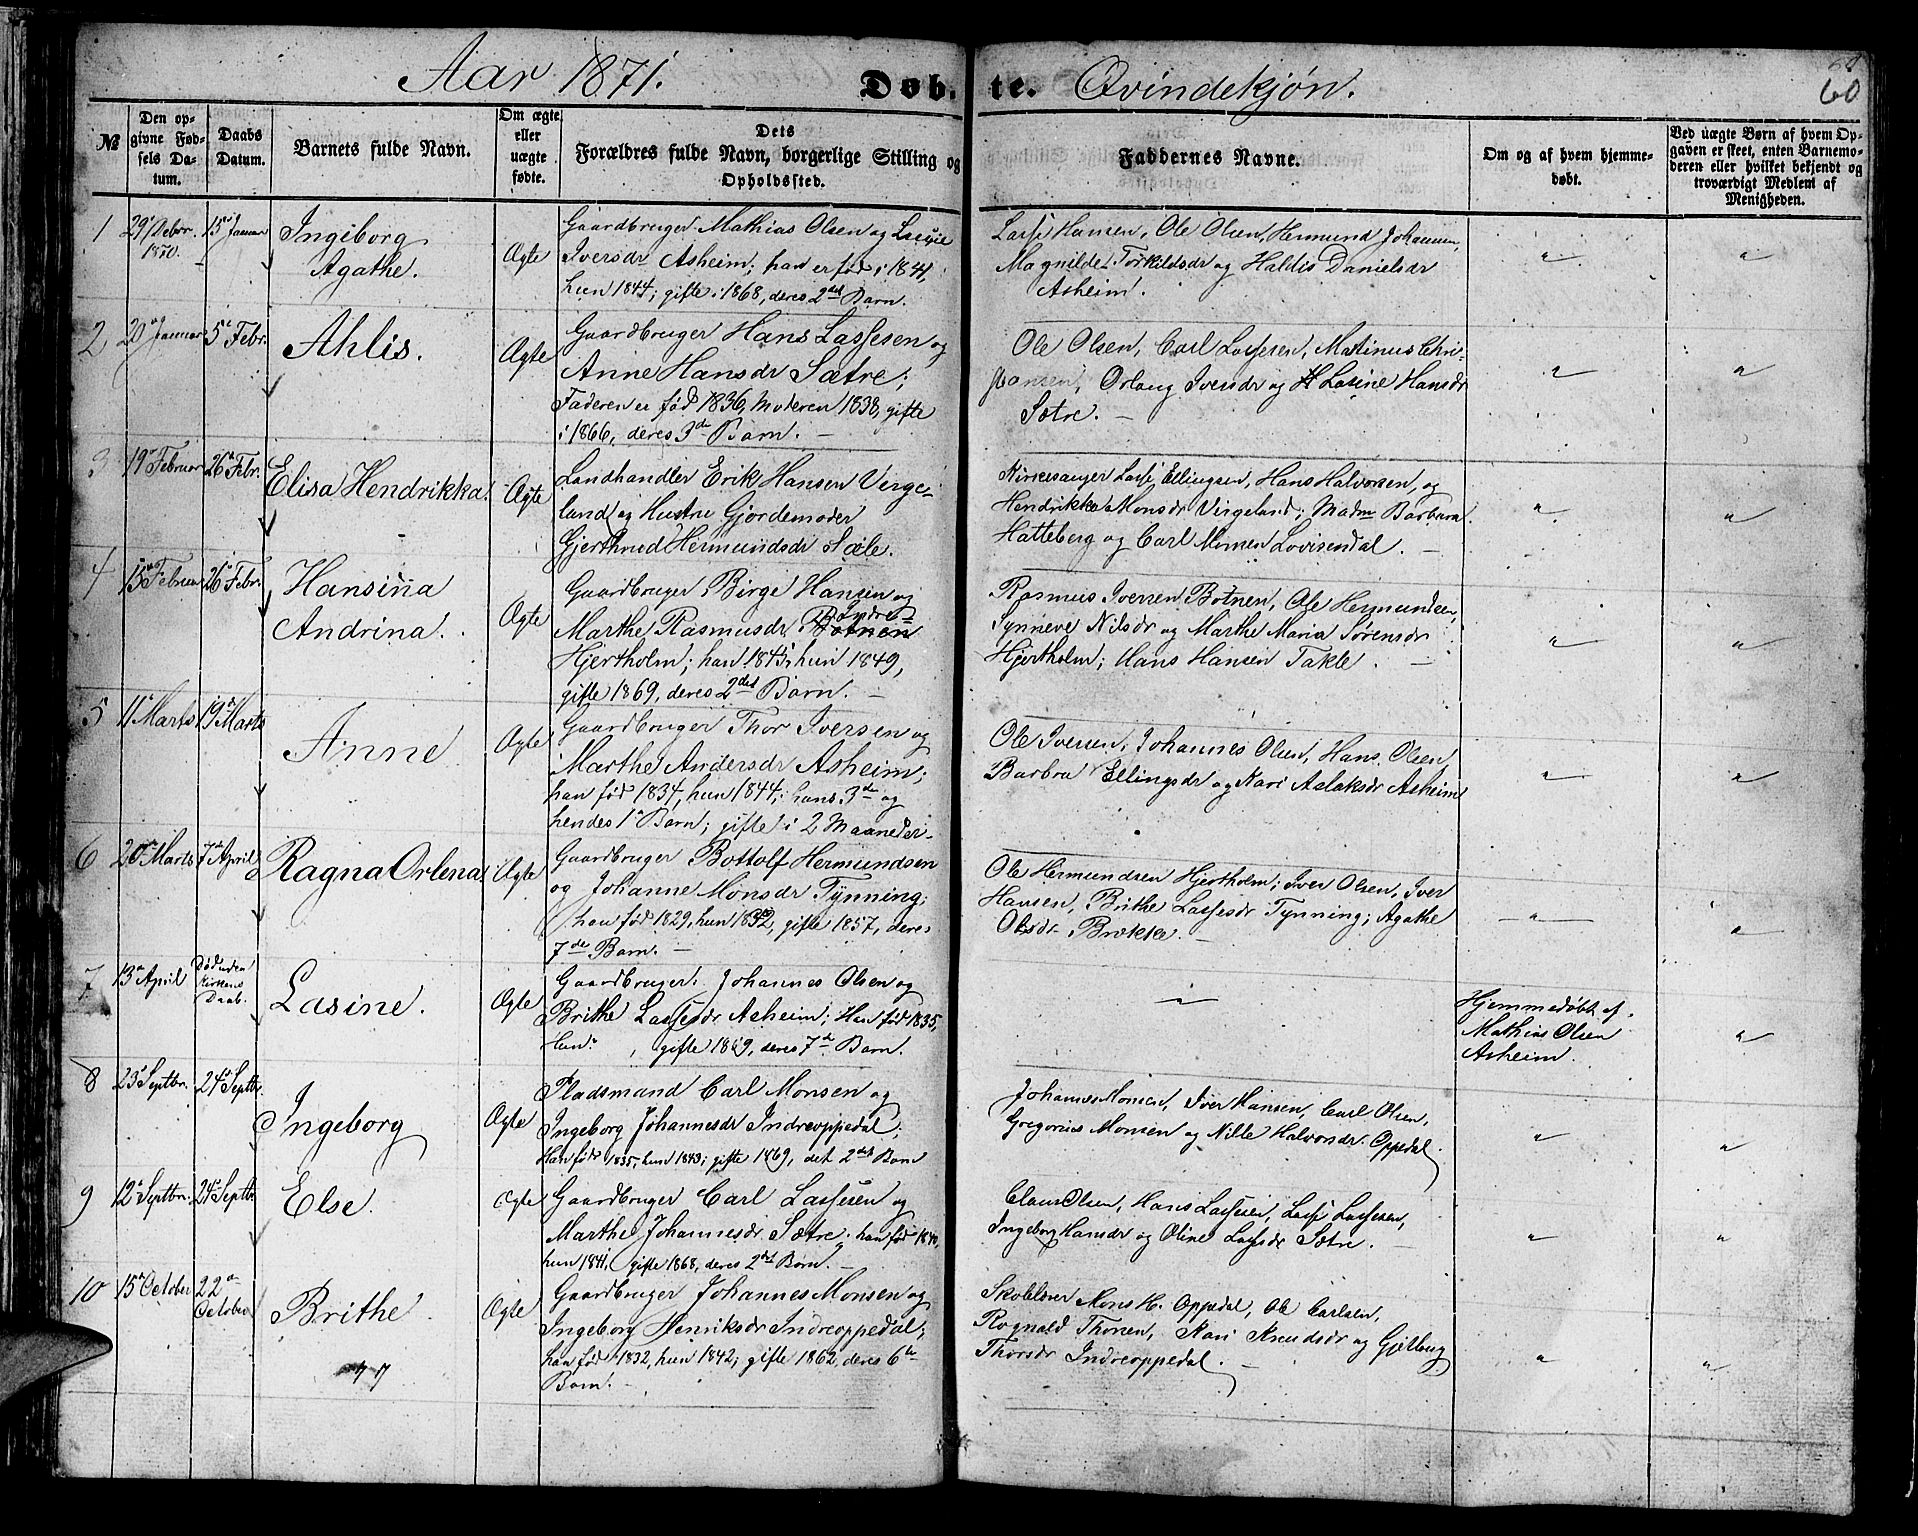 Aar 1871. Døb- te. Qvindekjøn. 60
№
Den op-
givne Fød-
sels Da-
tum.
Daabs
Datum.
Barnets fulde Navn.
Om ægte
eller
uægte
fødte.
Dets
Forældres fulde Navn, borgerlige Stilling og
Opholdssted.
Faddernes Navne.
Om og af hvem hjemme-
døbt.
Ved uægte Børn af hvem Op-
gaven er skeet, enten Barnemo-
deren eller hvilket bekjendt og
troværdigt Medlem af
Menigheden.
1
29 Debr.
1870.
15 Januar
Ingeborg
Agathe.
Ægte
Gaardbruger Mathias Olsen og
Iversdr Asheim; han er fød i 1841,
hun 1844; gifte i 1868, deres 2det Barn.
Lasse Hansen, Ole Olsen, Hermund Johannesen,
Magnilde Torkildsdr og Haldis Danielsdr
Asheim.
"
"
2
20 Januar
5 Febr.
Ahlis.
Ægte
Gaardbruger Hans Lassesen og
Anne Hansdr Sætre;
Faderen er fød 1836, Moderen 1838, gifte
i 1866, deres 3de Barn. —
Ole Olsen, Carl Lassesen, Matinus Chri-
stansen, Orlaug Iversdr og Lasine Hansdr
Sætre. —
"
"
3
19 Februar
26 Febr.
Elisa Hendrikka.
Ægte
Landhandler Erik Hansen Verge-
land og Hustru Gjordemoder
Gjerthrud Hermundsdr Sæle.
Kirkesanger Lasse Ellingsen, Hans Halvorsen, og
Hendrikka Monsdr Virgeland; Madm Barbara
Hatteberg og Carl Monsen Lovisendal. —
"
"
4
13 Februar
26 Febr.
Hansina
Andrina.
Ægte
Gaardbruger Birge Hansen og
Indre-
Marthe Rasmusdr Botnen
Hjertholm; han 1845, hun 1849,
gifte 1869, deres 2det Barn. —
Rasmus Iversen Botnen, Ole Hermundsen,
Synneve Nilsdr og Marthe Maria Sørensdr
Hjertholm; Hans Hansen Takle. —
"
"
5
11 Marts
19 Marts
Anne
Ægte
Gaardbruger Thor Iversen og
Marthe Andersdr Asheim;
han fød 1834, hun 1844; hans 3de og
hendes 1 Barn; gifte i 2 Maaneder.
Ole Iversen, Johannes Olsen, Hans Olsen,
Barbra Ellingsdr og Kari Aslaksdr Asheim
"
"
6
20 Marts
7 April
Ragna Orlena.
Ægte
Gaardbruger Bottolf Hermundsen
og Johanne Monsdr Tynning;
han fød 1829, hun 1832, gifte 1857, deres
7de Barn. —
Ole Hermundsen Hjertholm; Iver Olsen, Iver
Hansen, Brithe Lassesdr Tynning; Agathe
Olsdr Brække. —
"
"
7
13 April
Død uden
Kirkens
Daab.
Lasine.
Ægte
Gaardbruger Johannes Olsen og
Brithe Lassesdr Asheim; Han fød 1835,
hun " , gifte 1859, deres 7de Barn.
"
Hjemmedøbt af
Mathias Olsen
Asheim.
"
8
23 Septbr.
24 Septbr.
Ingeborg
Ægte
Pladsmand Carl Monsen og
Ingeborg Johannesdr Indreoppedal;
Han fød 1835, hun 1843; gifte 1869, det 2det Barn
Johannes Monsen, Iver Hansen, Carl Olsen,
Gregorius Monsen og Nille Halvorsdr Oppedal.
"
"
9
12 Septbr.
24 Septbr
Else.
Ægte
Gaardbruger Carl Lassesen og
Marthe Johannesdr Sætre; han fød 1840,
hun 1841, gifte 1868, deres 2det Barn. —
Claus Olsen, Hans Lassesen, Lasse Lassesen,
Ingeborg Hansdr og Oline Lassesdr Sætre. —
"
"
10
15 October
22
October
Brithe
Ægte
Gaardbruger Johannes Monsen og
Ingeborg Henriksdr Indreoppedal;
han fød 1832, hun 1842; gifte 1862, deres 6te
Barn. —
Skolelærer Mons H. Oppedal, Ole Carlsen,
Rognald Thorsen, Kari Knudsdr og Gjellaug
Thorsdr Indreoppedal. —
"
"